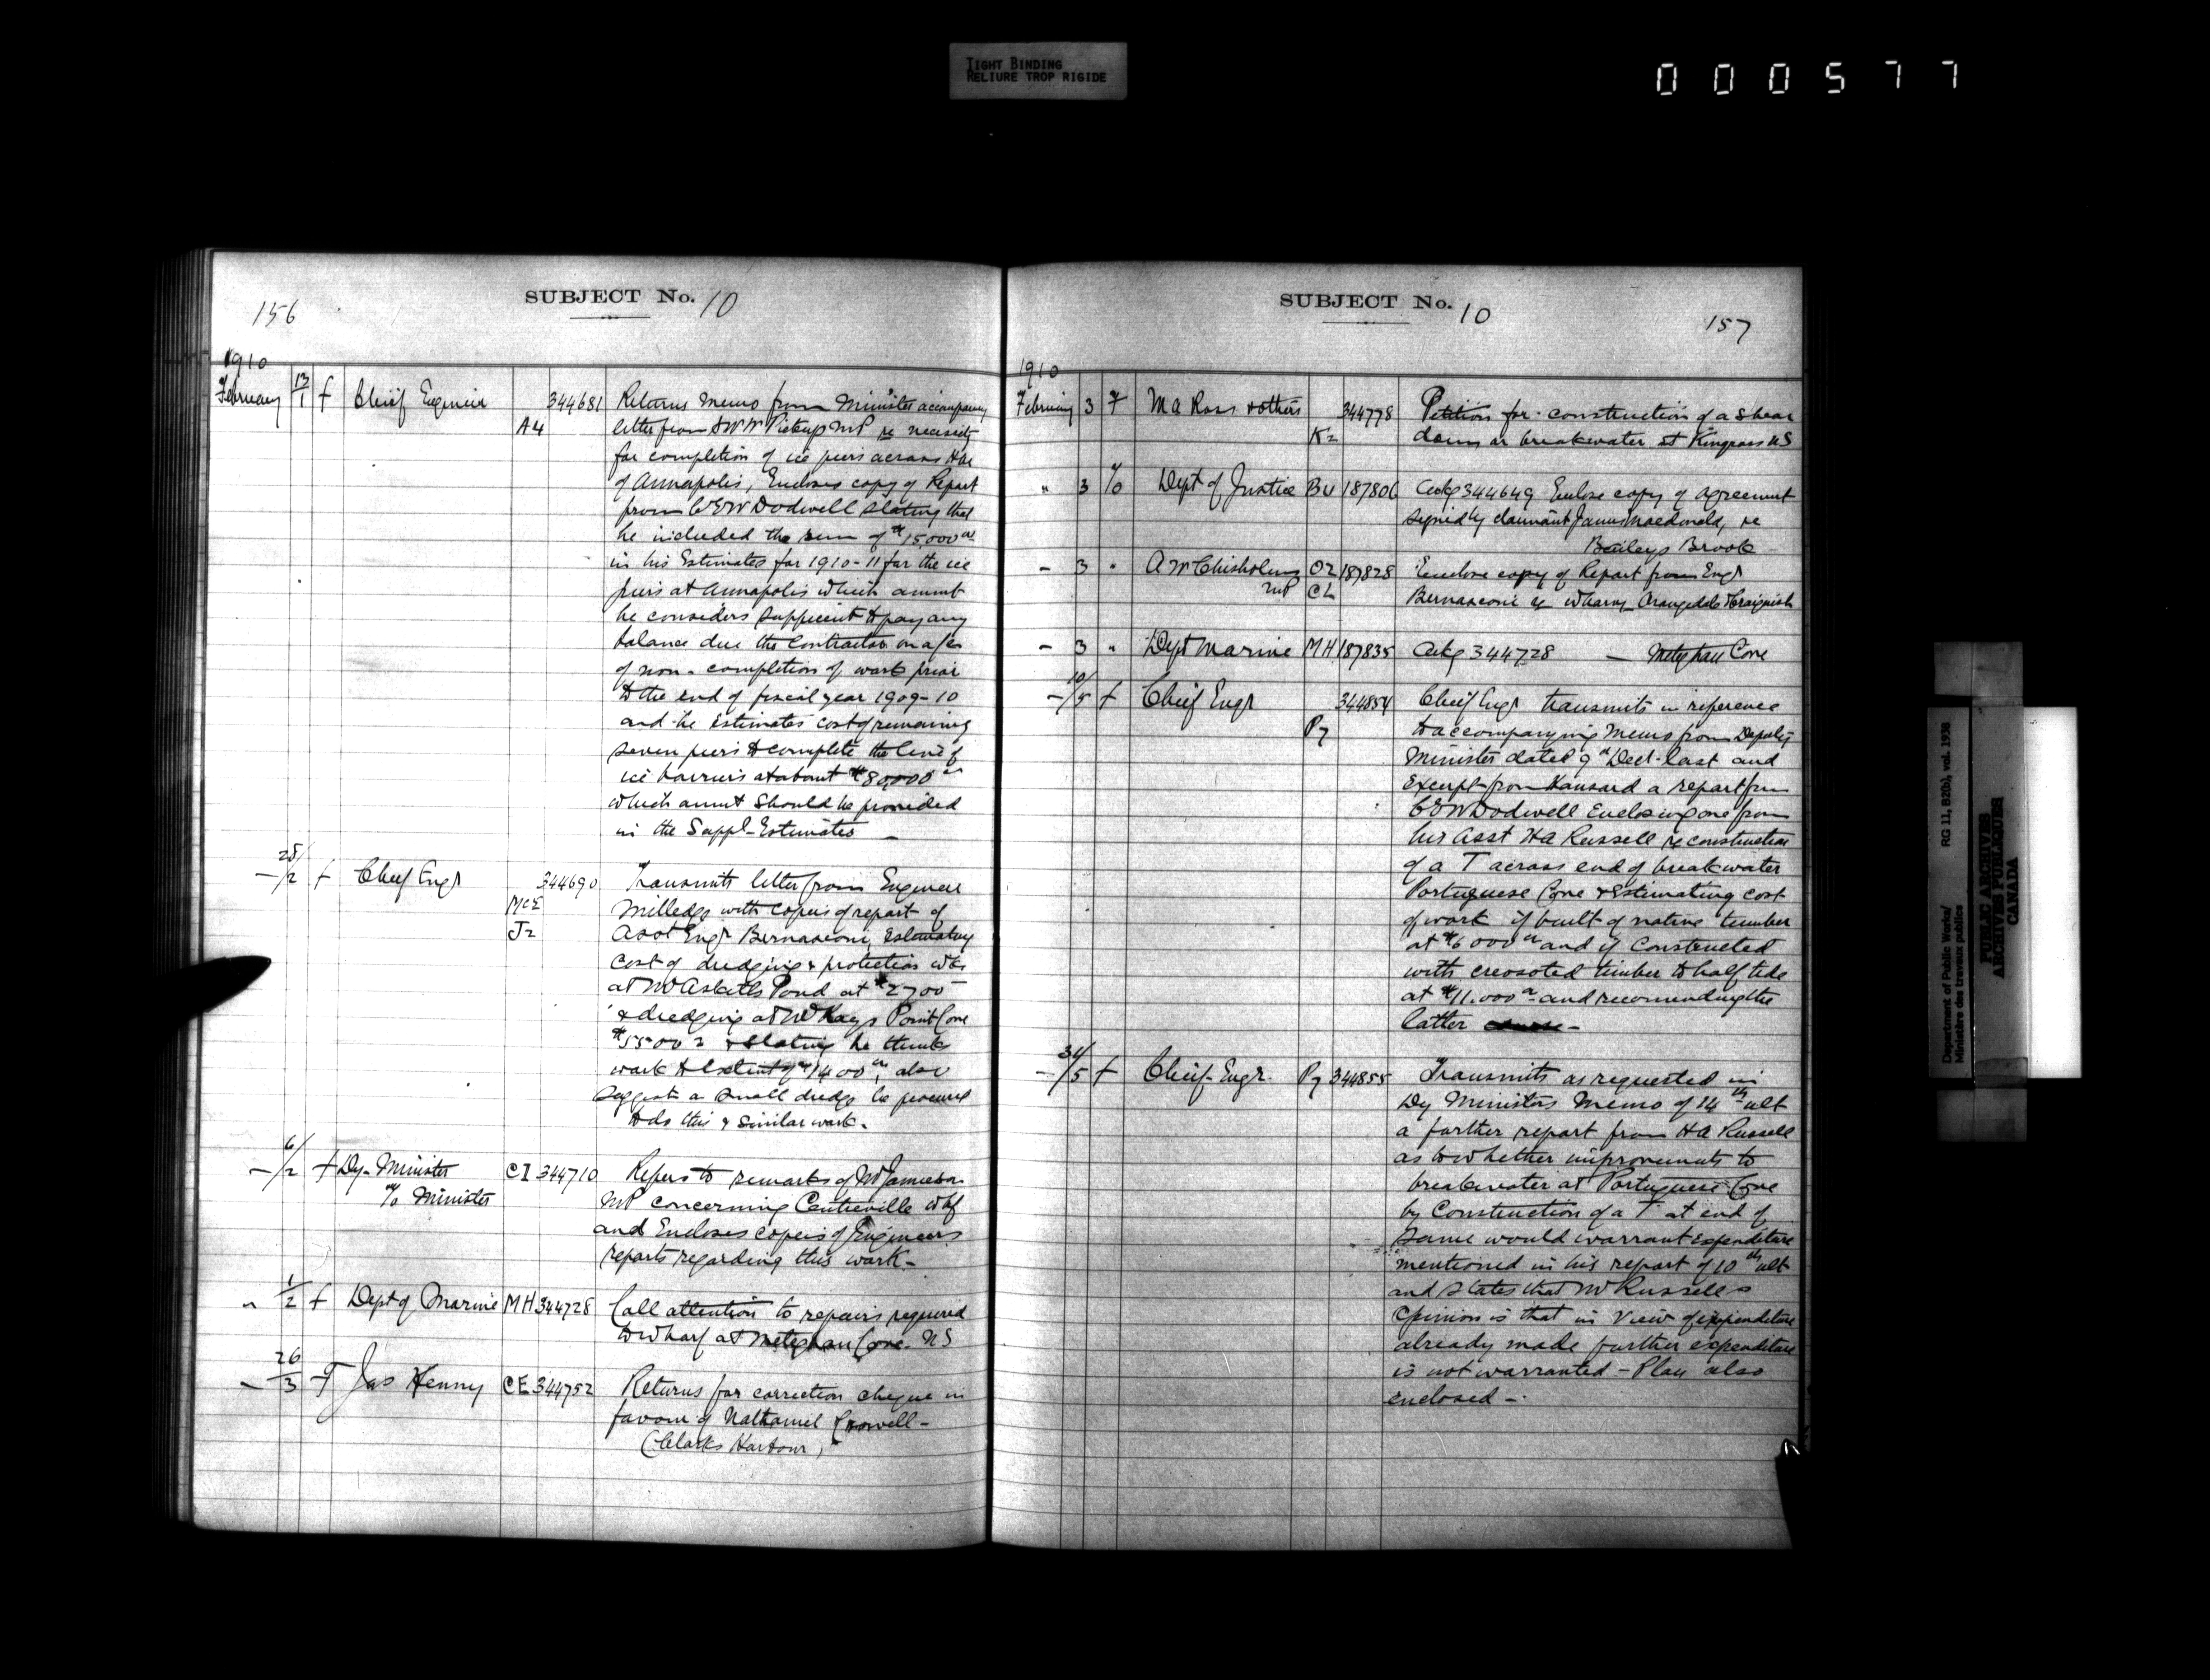 TIGHT BINDING
RELIURE TROP RIGIDE
000577
156
SUBJECT No. 10
1910
February 13/1 f Chief Engineer 344681 Returns Memo from Minister accompany
A4 letter from SWW Pickup MP re necessity
for completion of ice piers across Har
of Annapolis, Encloses copy of Report
from CEW Dodwell stating that
he included the sum of $15,000 00
in his Estimates for 1910-11 for the ice
piers at Annapolis which amount
he considers sufficient to pay any
balance due the Contractor on a/c
of non-completion of work prior
to the end of fiscal year 1909-10
and he estimates cost of remaining
seven piers to complete the line of
ice barriers at about $80,000 00
which amnt should be provided
in the Suppl-Estimates -
- 28/2 f Chief Engr 344690 Transmits letter from Engineer
McE Milledge with copies of report of
J2 Asst Engr Bernasconi, Estimating
cost of dredging & protection wks
at McAskills Pond at $2700
& dredging at McKays Point Cove
$5500 & stating he thinks
work to extent of $1400 00, also
suggests a small dredge be procured
to do this & similar work.
- 6/2 f Dy- Minister CI 344710 Refers to remarks of Mr Jamieson
% Minister MP concerning Centreville Whf
and Encloses copies of Engineers
reports regarding this work-
" 1/2 f Dept of Marine MH 344728 Call attention to repairs required
to Wharf at Meteghan Cove NS
- 26/3 f Jas Kenny CE 344752 Returns for correction cheque in
favour of Nathaniel Crowell-
(Clarks Harbour)
SUBJECT No. 10
157
1910
February 3 F M A Ross & others 344778 Petition for construction of a shear
K2 dam or breakwater at Kingross NS
" 3 % Dept of Justice BU 187806 Ackg 344649 Enclose copy of agreement
signed by claimant James Macdonald, re
Baileys Brook
- 3 " A W Chisholm O2 187828 Enclose copy of Report from Engr
MP CL Bernasconi re wharves Orangedale & Craignish
- 3 " Dept Marine MH 187835 Ackg 344728 - Meteghan Cove
- 10/5 f Chief Engr 344854 Chief Engr transmits in reference
P7 to accompanying Memo from Deputy
Minister dated 9th Dect-last and
Excerpt from Hansard a report from
CEW Dodwell Enclosing one from
his Asst H A Russell re construction
of a T across end of breakwater
Portuguese Cove & Estimating cost
of work if built of native timber
at $6000 00 and if Constructed
with creosoted timber to half tide
at $11.000 00 and recomending the
latter course-
- 31/5 f Chief-Engr. P7 344855 Transmits as requested in
Dy Ministers Memo of 14th ult
a further report from H A Russell
as to whether improvements to
breakwater at Portuguese Cove
by Construction of a T at end of
same would warrant Expenditure
mentioned in his report of 10th ult
and states that Mr Russells
Opinion is that in view of expenditure
already made further expenditure
is not warranted - Plan also
enclosed -
Department of Public Works/ RG 11, B2(b), vol. 1938
Ministère des travaux publics
PUBLIC ARCHIVES
ARCHIVES PUBLIQUES
CANADA